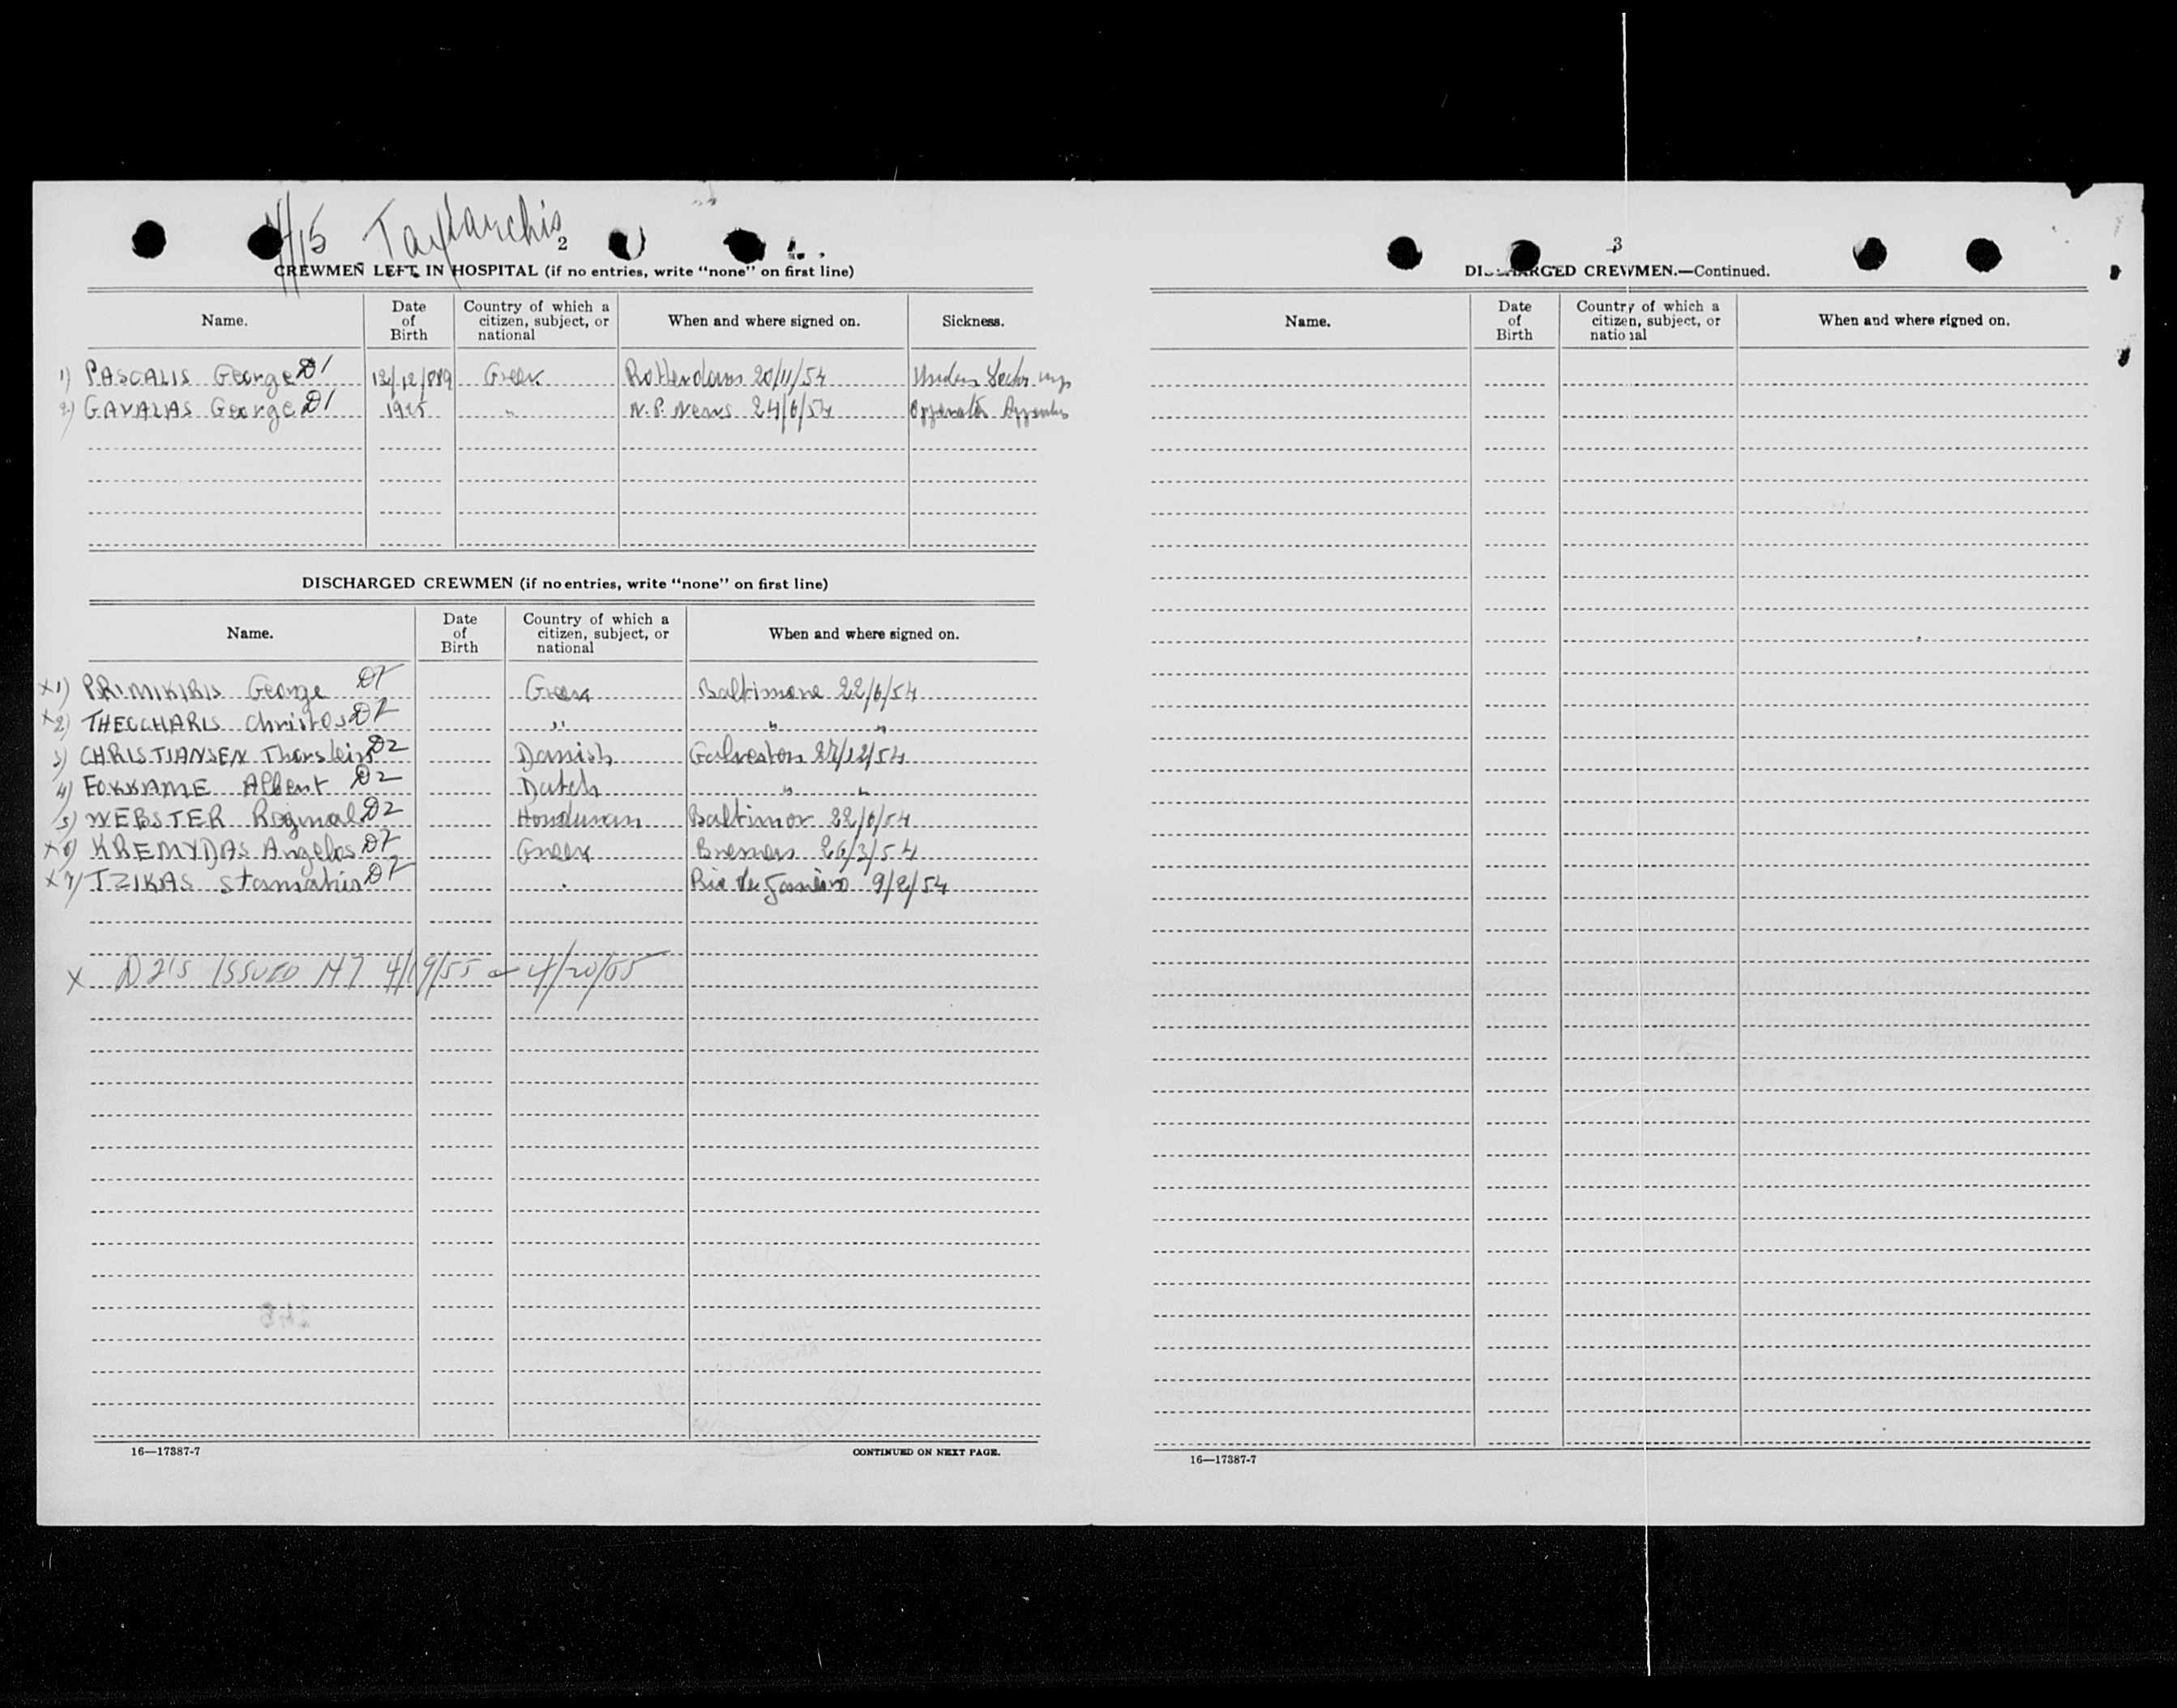 4/15 Taxiarchis
2
CREWMEN LEFT IN HOSPITAL (if no entries, write "none" on first line)
Name. Date of Birth Country of which a citizen, subject, or national When and where signed on. Sickness.
1) PASCALIS George D1 Greek Rotterdam 20/11/54 Under
2) GAVALAS George D1 1925 " N.P. News 24/6/54
DISCHARGED CREWMEN (if no entries, write "none" on first line)
Name. Date of Birth Country of which a citizen, subject, or national When and where signed on.
X1) PRIMIKIRIS George D2 Greek Baltimore 22/6/54
X2) THEOCHARIS Christos D2 " " "
3) CHRISTIANSEN Thorstein D2 Danish Galveston 27/12/54
4) FOKKAME Albert D2 Dutch " "
5) WEBSTER Reginal D2 Honduran Baltimor 22/6/54
X6) KREMYDAS Angelos D2 Greek Bremen 26/3/54
X7) TZIKAS Stamatis D2 . Rio de Janeiro 9/2/54
X D2'S ISSUED 4/19/55 & 4/20/55
16—17387-7 CONTINUED ON NEXT PAGE.
3
DISCHARGED CREWMEN.—Continued.
Name. Date of Birth Country of which a citizen, subject, or national When and where signed on.
16—17387-7